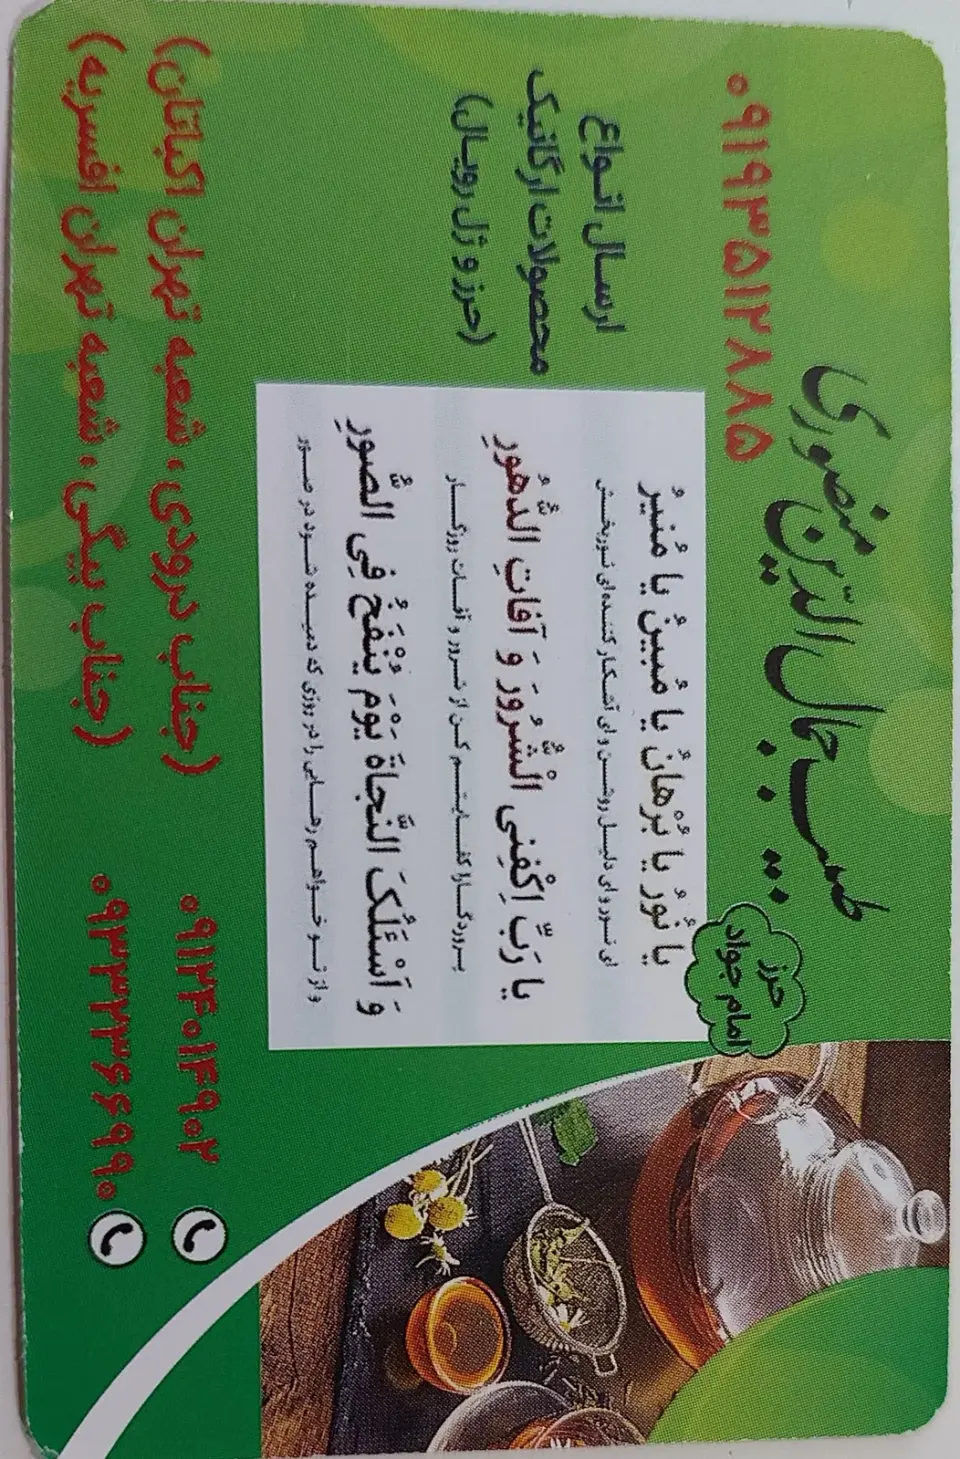 طبیب جمال الدین منصوری
۰۹۱۹۳۵۱۲۸۸۵
حرز
امام جواد
ارسال انواع
محصولات ارگانیک
(حرز و ژل رویال)
یا نُورُ یا بُرْهانُ یا مُبینُ یا مُنیرُ
ای نور و ای دلیل روشن و ای آشکار کننده ای نوربخش
یا رَبِّ اِکْفِنِی الْشُّرُورَ وَ آفاتِ الدُّهُورِ
پروردگارا کفایتم کن از شرور و آفات روزگار
وَ اَسْئَلُکَ النَّجاةَ یَوْمَ یُنْفَخُ فِی الصُّورِ
و از تو خواهم رهایی را در روزی که دمیده شود در صور
۰۹۱۲۴۰۱۴۹۰۲ (جناب درودی، شعبه تهران اکباتان)
(جناب بیگی، شعبه تهران افسریه)